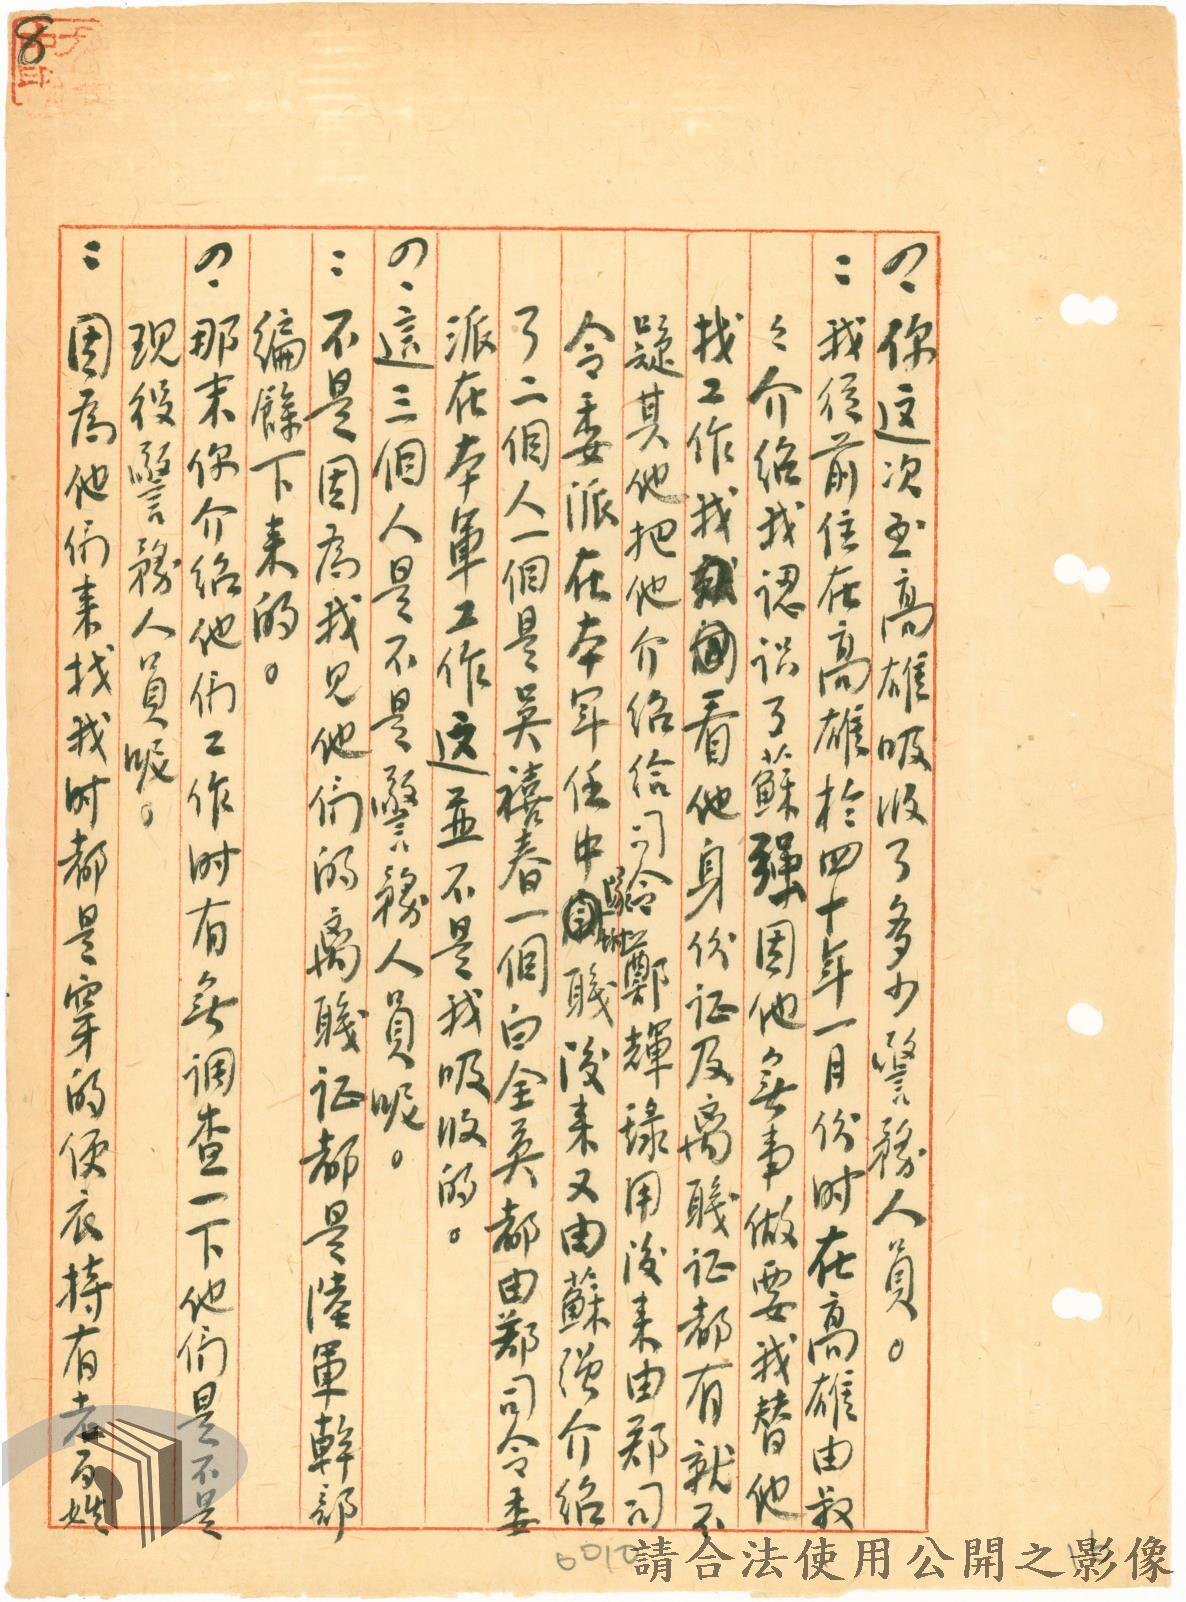 8
の、你这次至高雄吸收了多少警務人員。
：我從前住在高雄於四十年一月份时在高雄由叔
々介绍我認识了蘇强因他無事做要我替他
找工作我看他身份证及离職证都有就不
疑其他把他介绍给司令鄭輝録用後来由郑司
令委派在本军任中隊附職後来又由蘇强介绍
了二個人一個是吴禧春一個白全英都由郑司令委
派在本軍工作这並不是我吸收的。
の、這三個人是不是警務人員呢。
：不是因為我见他们的离職证都是陸軍幹部
编餘下来的。
の、那末你介绍他们工作时有無调查一下他们是不是
现役警務人員呢。
：因為他们来找我时都是穿的便衣持有老百姓
0010
請合法使用公開之影像